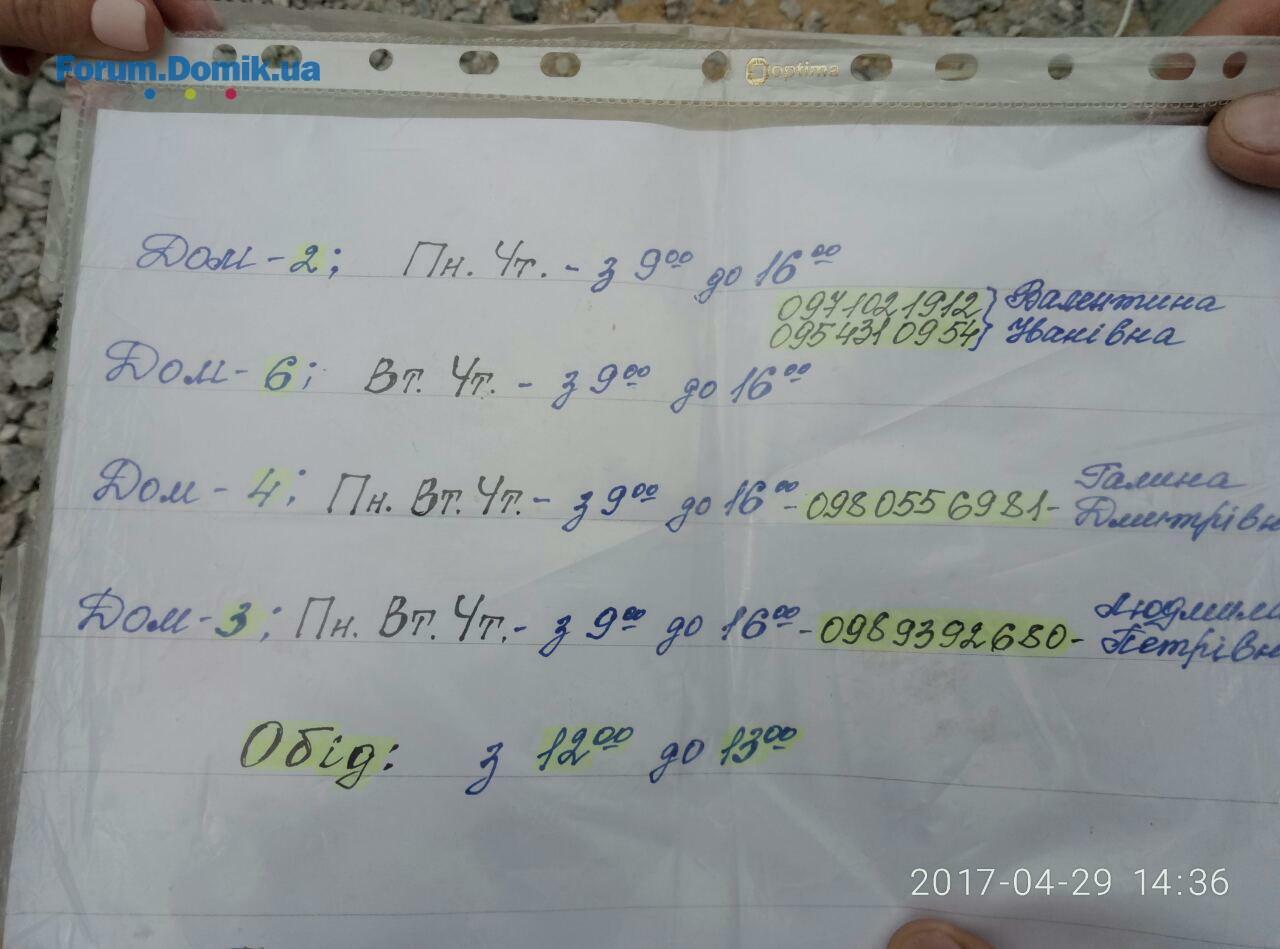 Forum.Domik.ua
optima
Дом-2; Пн. Чт. - з 9⁰⁰ до 16⁰⁰
0971021912 } Валентина
0954310954 } Іванівна
Дом-6; Вт. Чт. - з 9⁰⁰ до 16⁰⁰
Дом-4; Пн. Вт. Чт. - з 9⁰⁰ до 16⁰⁰ - 0980556981 - Галина
Дмитрівн
Дом-3; Пн. Вт. Чт. - з 9⁰⁰ до 16⁰⁰ - 0989392680 - Людмила
Петрівн
Обід: з 12⁰⁰ до 13⁰⁰
2017-04-29 14:36